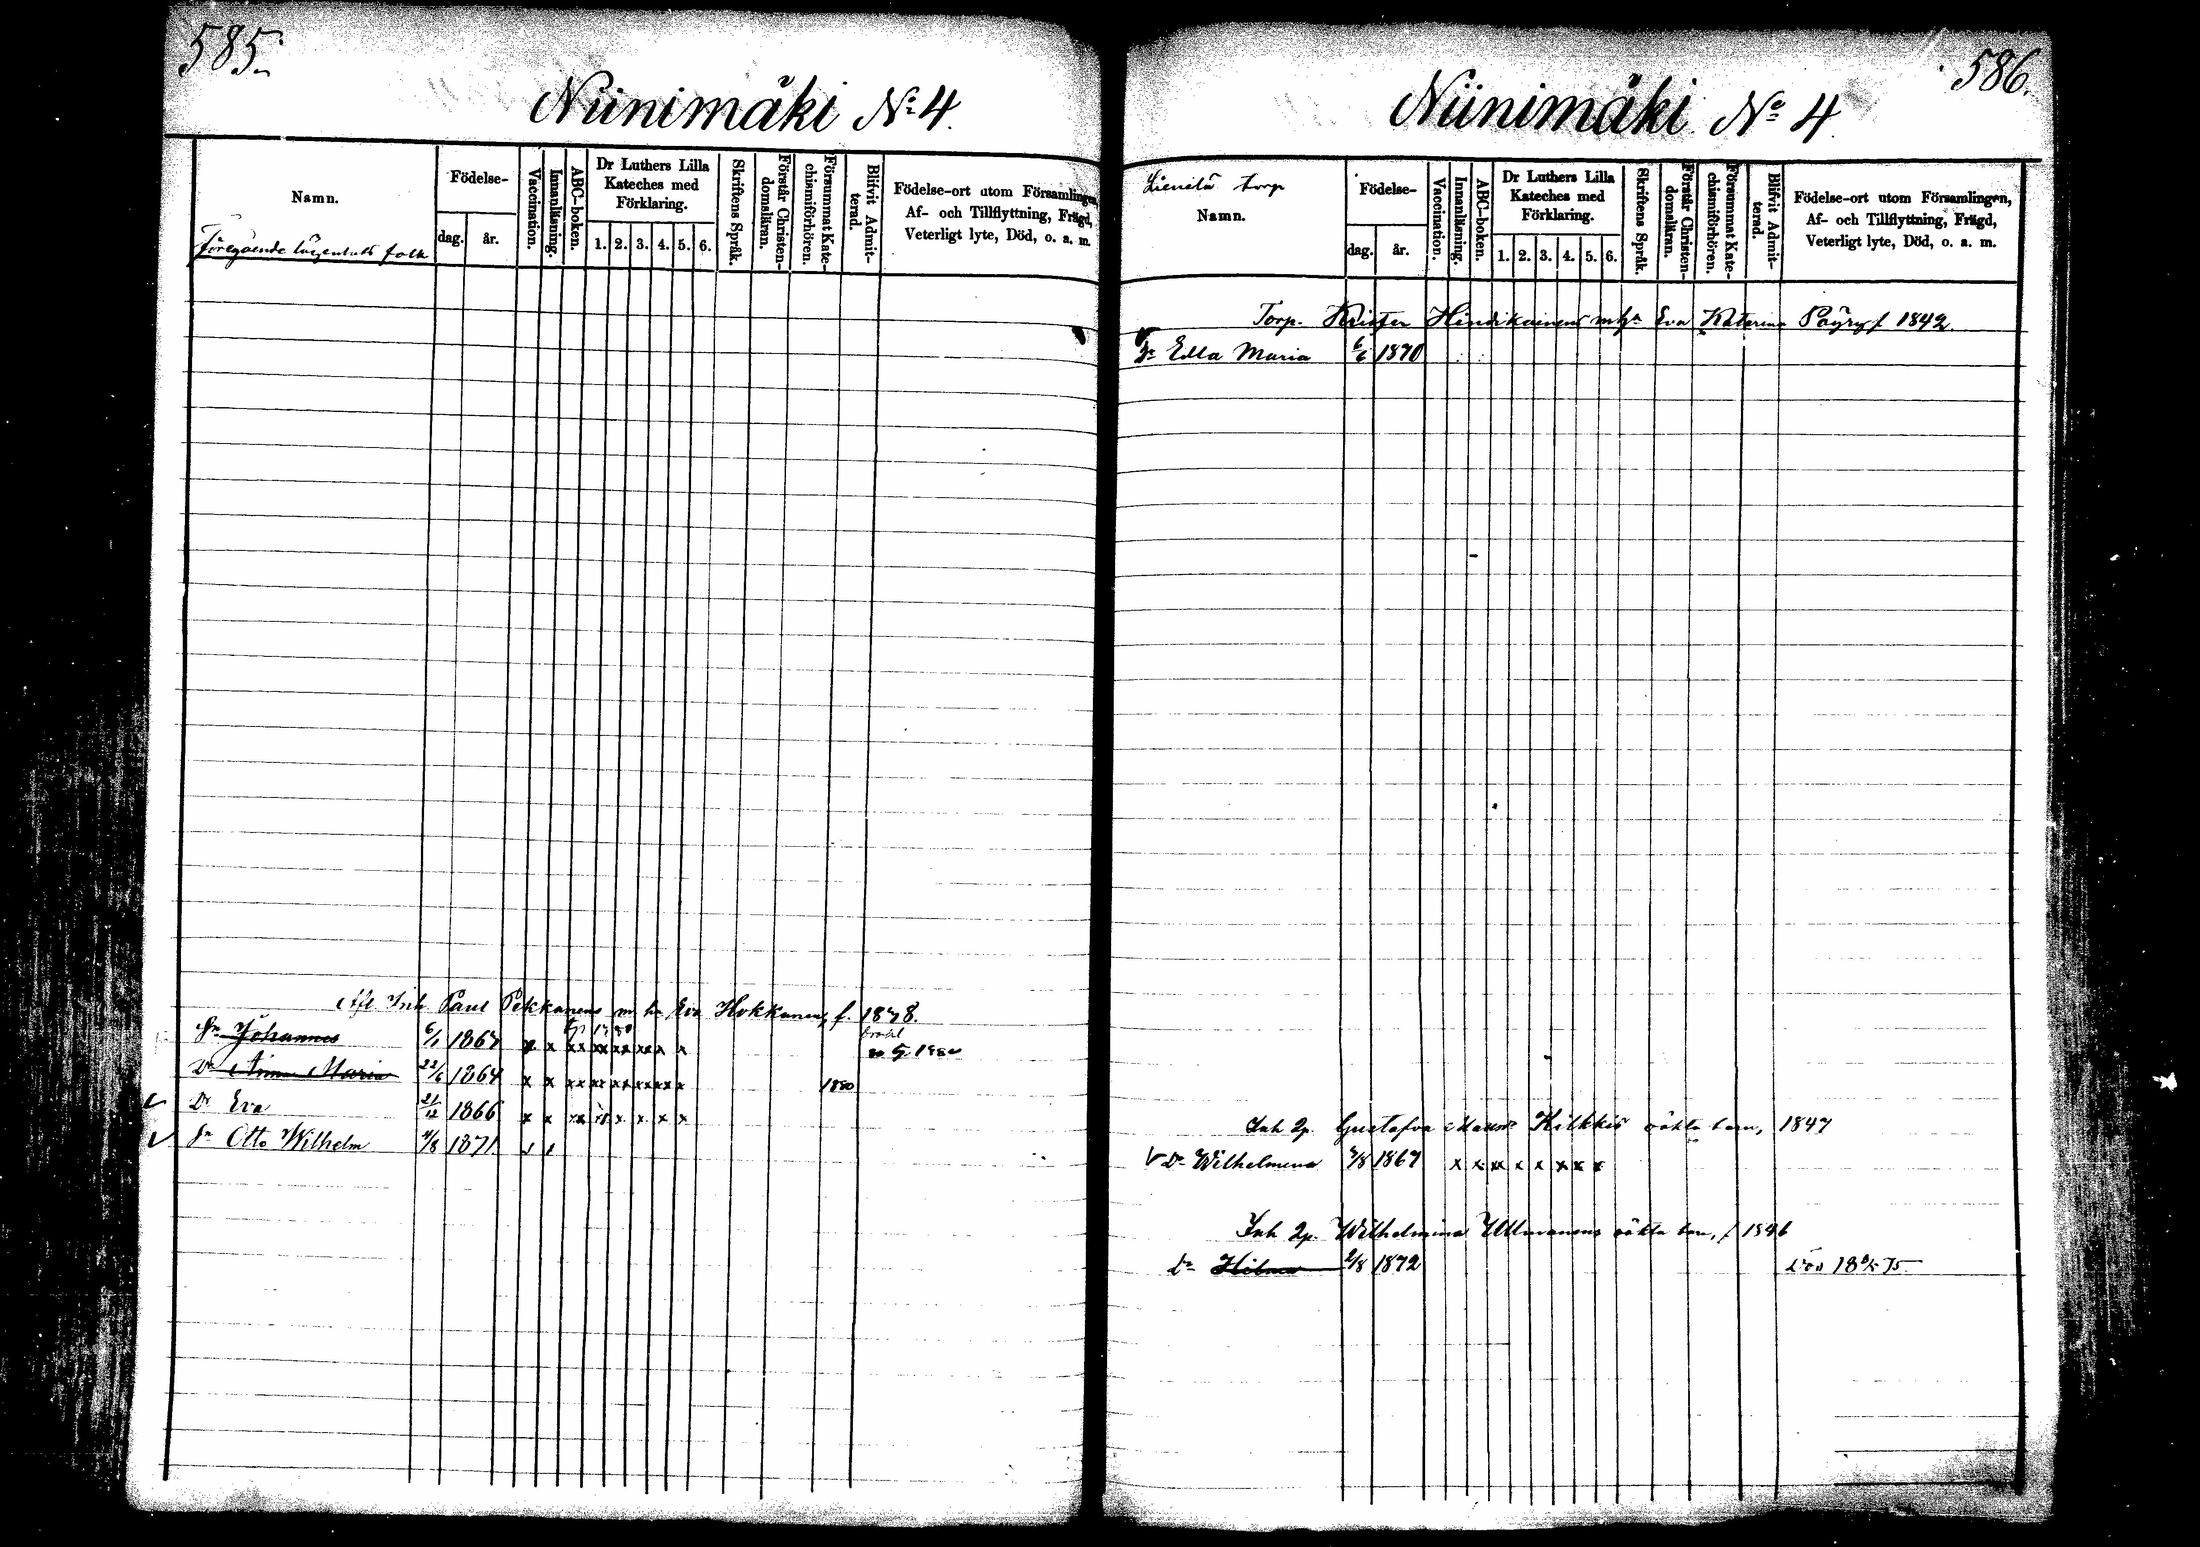 585.
Niinimäki No 4.
Namn.
Födelse-
dag.
år.
Vaccination.
Innanläsning.
ABC-boken.
Dr Luthers Lilla
Kateches med
Förklaring.
1. 2. 3. 4. 5. 6.
Skriftens Språk.
Förstår Christen-
domsläran.
Försummat Kate-
chismiförhören.
Blifvit Admit-
terad.
Födelse-ort utom Församlingen,
Af- och Tillflyttning, Frägd,
Veterligt lyte, Död, o. a. m.
Föregående lägenhets folk
Afl. Inh. Paul Pekkanens m h Eva Hokkanen, f. 1878.
Sn Johannes 6/1 1867 x x xx xx xx xx x x
Dr Anna Maria 22/6 1864 x x xx xx xx xx x x 1880
Dr Eva 21/12 1866 x x xx x x x x
Sn Otto Wilhelm 4/8 1871
586.
Niinimäki No 4
Torp
Namn.
Födelse-
dag.
år.
Vaccination.
Innanläsning.
ABC-boken.
Dr Luthers Lilla
Kateches med
Förklaring.
1. 2. 3. 4. 5. 6.
Skriftens Språk.
Förstår Christen-
domsläran.
Försummat Kate-
chismiförhören.
Blifvit Admit-
terad.
Födelse-ort utom Församlingen,
Af- och Tillflyttning, Frägd,
Veterligt lyte, Död, o. a. m.
Torp. Krister Hindikainens m h Eva Katarina Pöyry f 1842
Dr Edla Maria 6/6 1870
Inh 2p. Gustafva Hilkkis oäkta barn, 1847
V Dr Wilhelmina 3/8 1867 x x x x x x x x
Inh 2p. Wilhelmina Ullmanens oäkta barn, f 1846
Dr Hilma 2/8 1872 Död